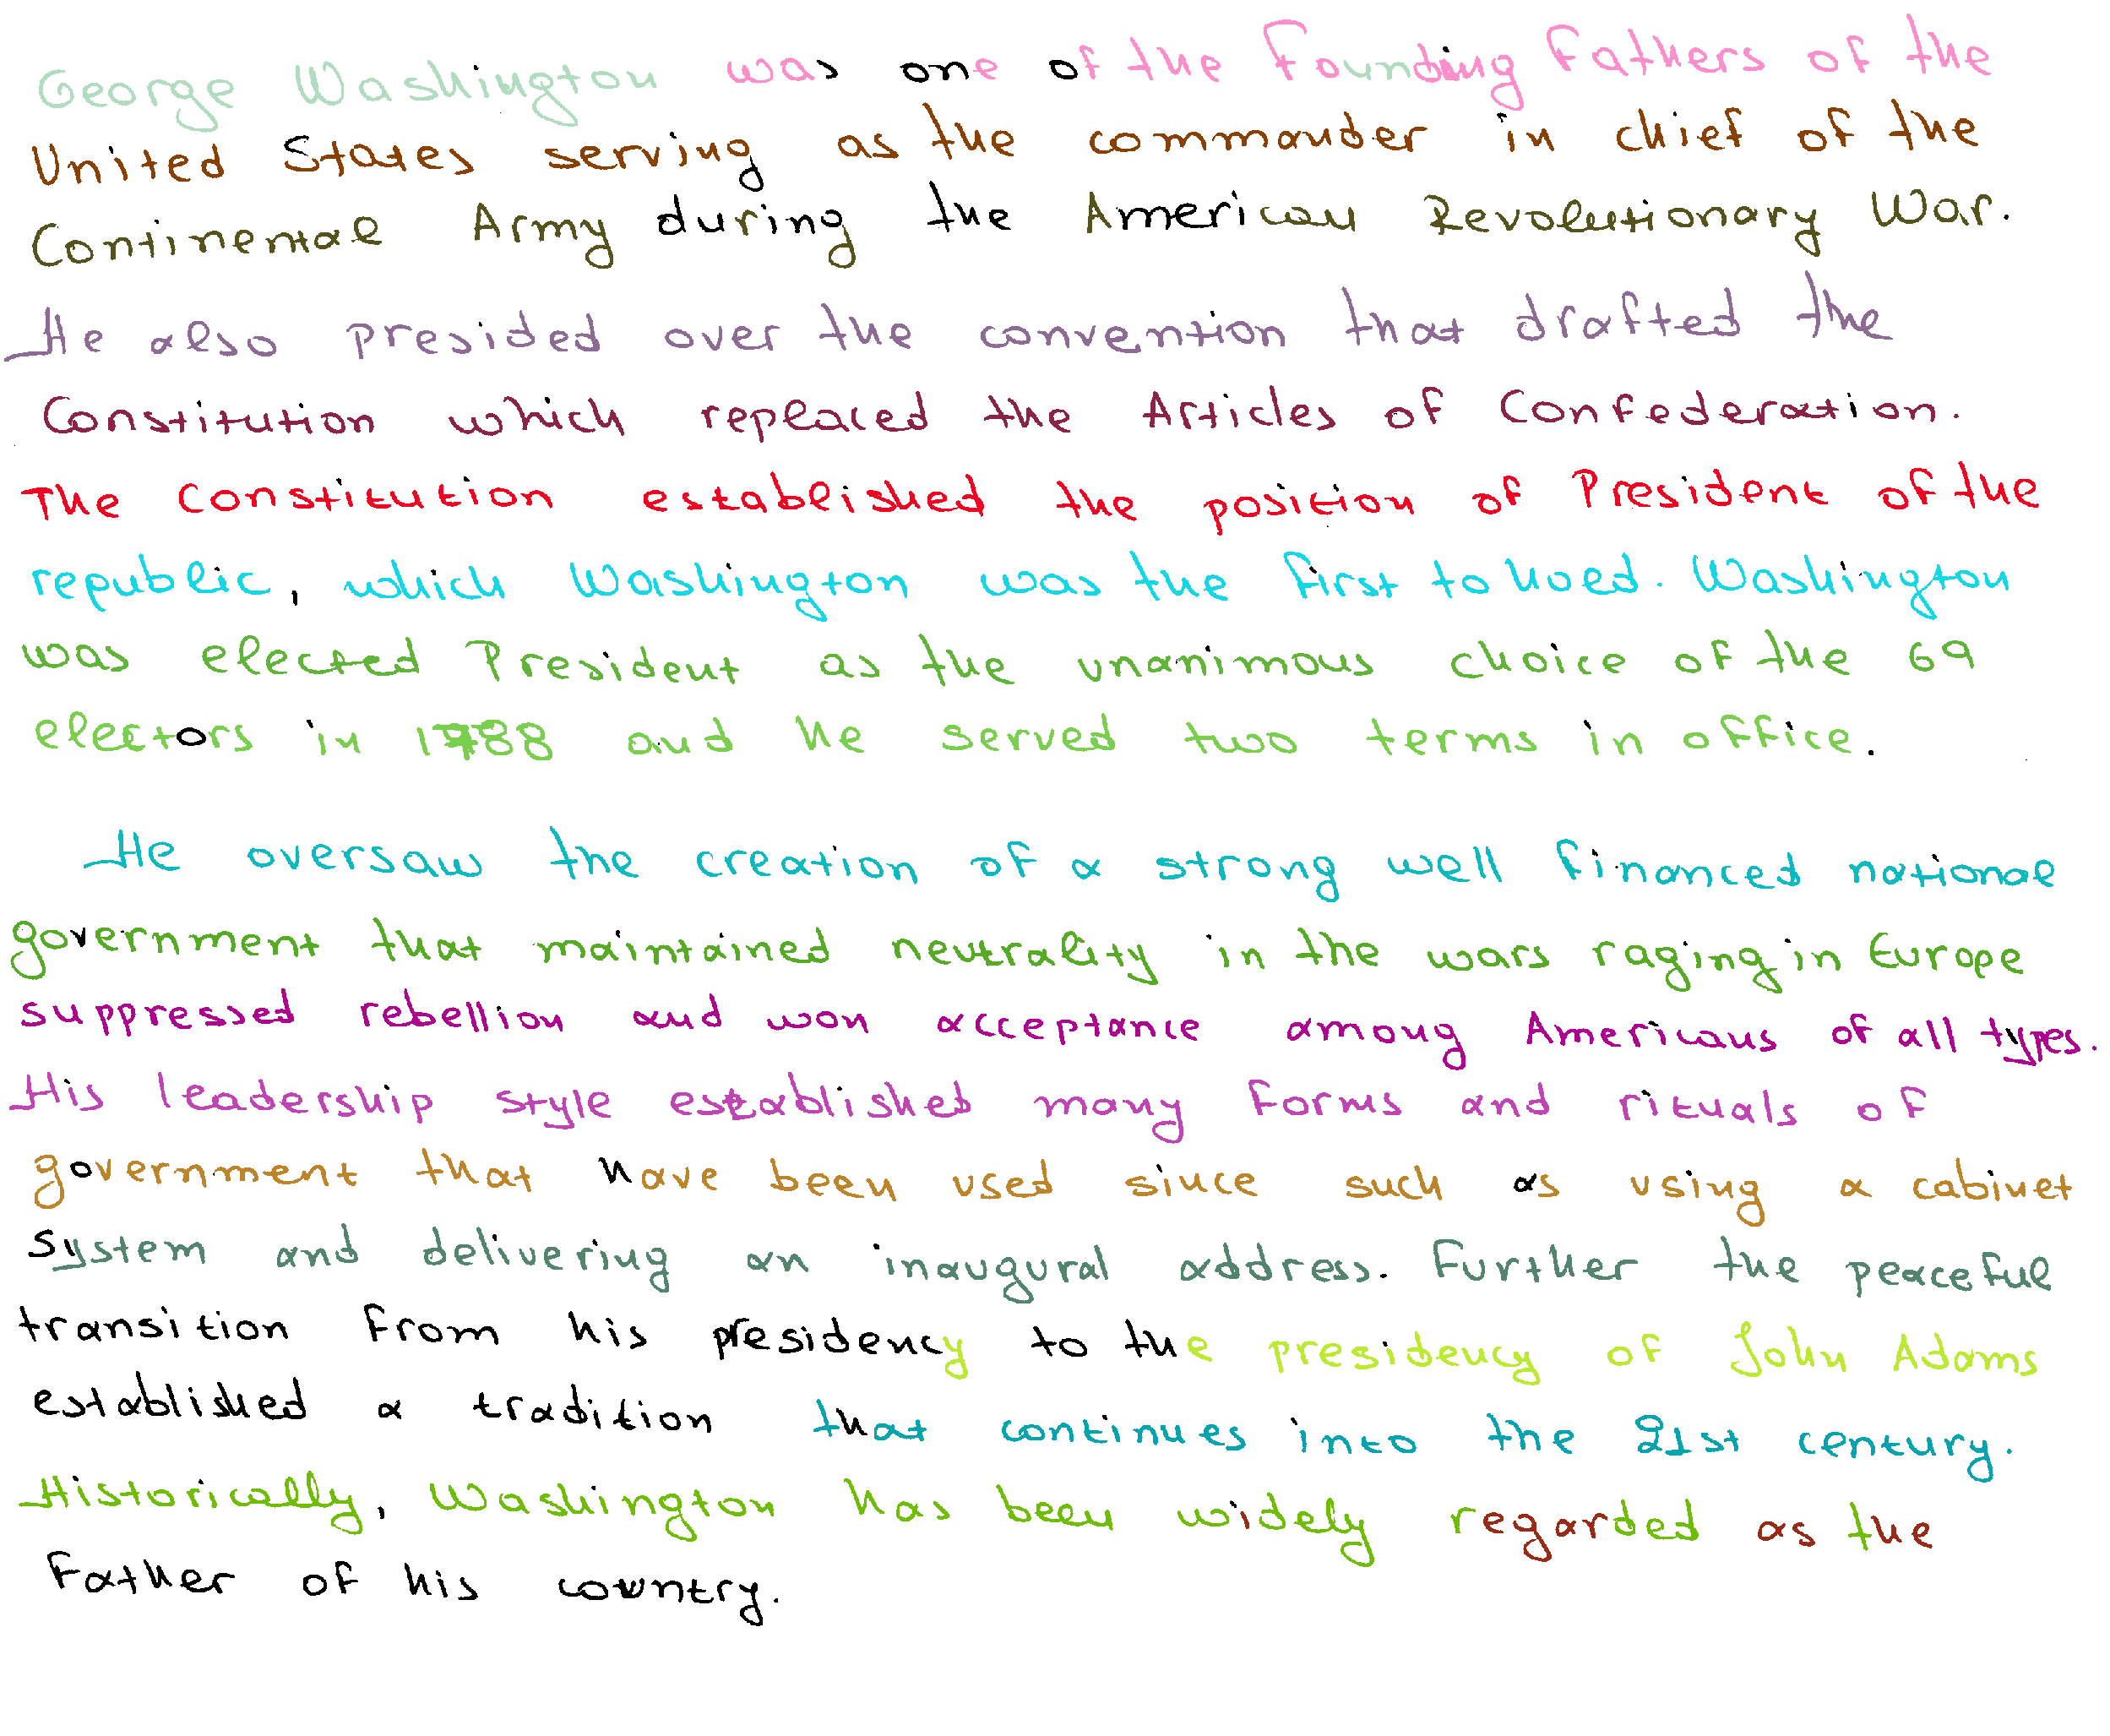 George Washington was one of the Founding Fathers of the
United States serving as the commander in chief of the
Continental Army during the American Revolutionary War.
He also presided over the convention that drafted the
Constitution which replaced the Articles of Confederation.
The Constitution established the position of President of the
republic, which Washington was the first to hold. Washington
was elected President as the unanimous choice of the 69
electors in 1788 and he served two terms in office.
He oversaw the creation of a strong well financed national
government that maintained neutrality in the wars raging in Europe
suppressed rebellion and won acceptance among Americans of all types.
His leadership style established many forms and rituals of
government that have been used since such as using a cabinet
system and delivering an inaugural address. Further the peaceful
transition from his presidency to the presidency of John Adams
established a tradition that continues into the 21st century.
Historically, Washington has been widely regarded as the
Father of his country.